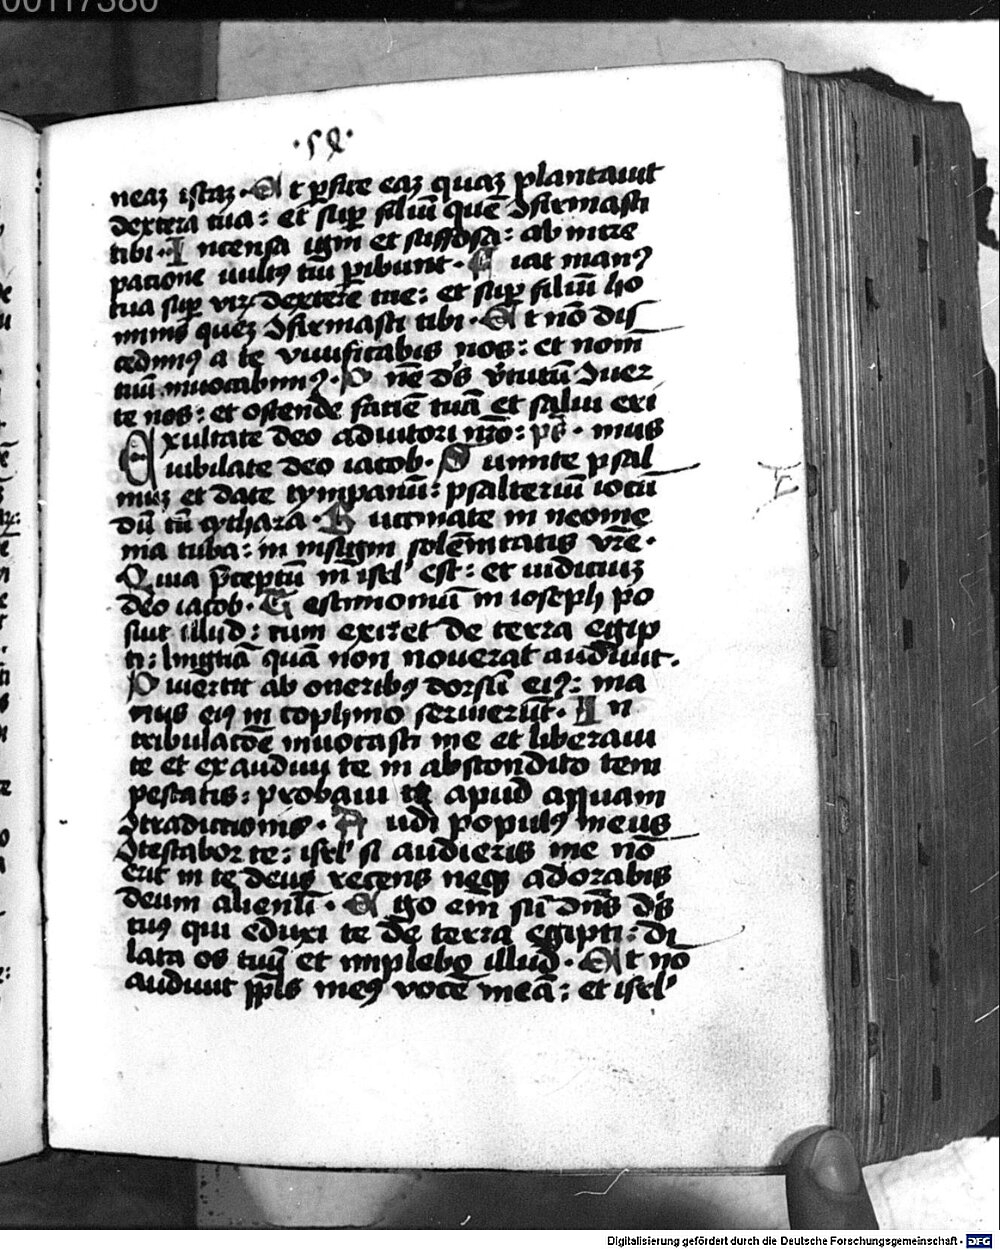 00117380
·58·
neaʒ istaʒ · Et ꝑfice eaʒ quaʒ plantauit
dextera tua : et suꝑ filiū quē ꝯfirmasti
tibi · Incensa igni et suffosa : ab incre
patione uultꝰ tui ꝑibunt · Fiat manꝰ
tua suꝑ virꝫ dextere tue : et suꝑ filiū ho
minis queʒ ꝯfirmasti tibi · Et nō dis
cedimꝰ a te viuificabis nos : et nom̄
tuū inuocabimꝰ · Dn̄e ds̄ v̓tutū ꝯuer
te nos : et ostende faciē tuā et salui eri
Exultate deo adiutori nr̄o : ps̄ · mus
iubilate deo iacob · Sumite psal
muʒ et date tympanū : psalteriū iocū
dū cū cythara · Buccinate in neome
nia tuba : in insigni solēnitatis vr̄e ·
Quia p̄ceptū in isrl̓ est : et iudiciuʒ
deo iacob · Testimoniū in ioseph po
suit illud : cum exiret de terra egip
ti : linguā quā non nouerat audiuit ·
Diuertit ab oneribꝰ dorsū eiꝰ : ma
nus eiꝰ in cophino seruierūt · In
tribulatōe inuocasti me et liberaui
te et exaudiui te in abscondito tem
pestatis : probaui te apud aquam
ꝯtradictionis · Audi populꝰ meus
ꝯtestabor te : isrl̓ si audieris me nō
erit in te deus recens neqꝫ adorabis
deum alienū · Ego em̄ sū dn̄s ds̄
tuꝰ qui eduxi te de terra egipti : di
lata os tuū et implebo illud · Et nō
audiuit ppl̄s meꝰ vocē meā : et isrl̓
Digitalisierung gefördert durch die Deutsche Forschungsgemeinschaft - DFG